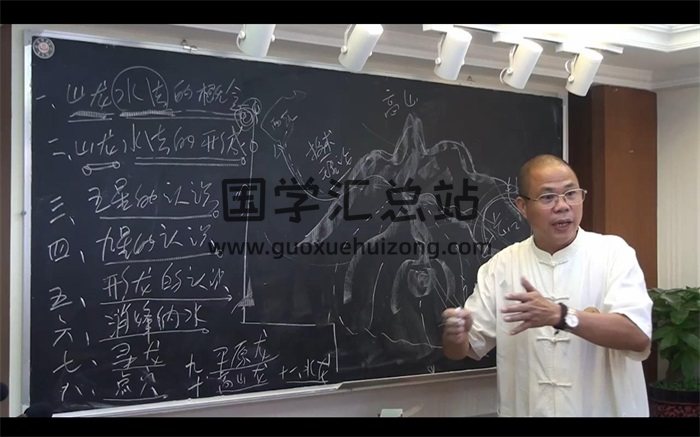 一、山龙水法的概念
二、山龙水法的形成
三、五星的认识
四、九星的认识
五、形龙的认识
六、消峰纳水
七、寻龙 九、平原龙
八、点穴 十、高山龙 十一、水龙
高山
国学汇总站
www.guoxuehuizong.com